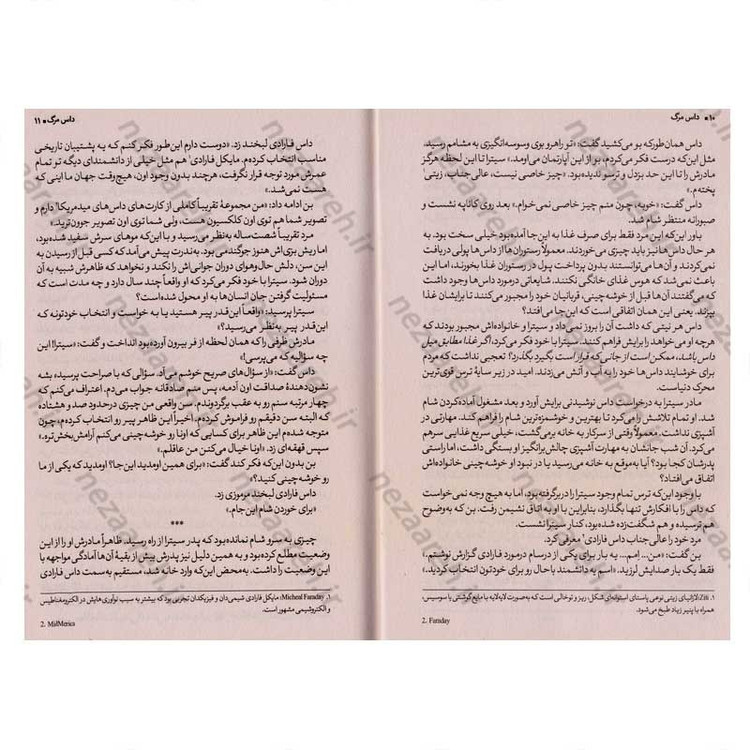 ۱۰ ■ داس مرگ
داس همان‌طور که بو می‌کشید گفت: «تو راهرو بوی وسوسه‌انگیزی به مشامم رسید.
مثل این‌که درست فکر می‌کردم، بو از این آپارتمان می‌اومد.» سیترا تا این لحظه هرگز
مادرش را تا این حد بزدل و ترسو ندیده بود. «چیز خاصی نیست، عالی‌جناب، زیتی¹
پخته‌م.»
داس گفت: «خوبه، چون منم چیز خاصی نمی‌خوام.» بعد روی کاناپه نشست و
صبورانه منتظر شام شد.
باور این‌که این مرد فقط برای صرف غذا به این‌جا آمده بود خیلی سخت بود. به
هر حال داس‌ها نیز باید چیزی می‌خوردند. معمولاً رستوران‌ها از داس‌ها پولی دریافت
نمی‌کردند و آن‌ها می‌توانستند بدون پرداخت پول در رستوران غذا بخورند، اما این
باعث نمی‌شد که هوس غذای خانگی نکنند. شایعاتی درمورد داس‌ها وجود داشت
که می‌گفتند آن‌ها قبل از خوشه‌چینی، قربانیان خود را مجبور می‌کنند تا برایشان غذا
بپزند. یعنی این همان اتفاقی است که این‌جا می‌افتد؟
داس هر نیتی که داشت آن را بروز نمی‌داد و سیترا و خانواده‌اش مجبور بودند که
هرچه او می‌خواهد را برایش فراهم کنند. سیترا با خود فکر می‌کرد، اگر غذا مطابق میل
داس باشد، ممکن است از جانی که قرار است بگیرد بگذرد؟ تعجبی نداشت که مردم
برای خوشایند داس‌ها خود را به آب و آتش می‌زدند. امید در زیر سایهٔ ترس قوی‌ترین
محرک دنیاست.
مادر سیترا به درخواست داس نوشیدنی برایش آورد و بعد مشغول آماده‌کردن شام
شد. او تمام تلاشش را می‌کرد تا بهترین و خوشمزه‌ترین شام را فراهم کند. مهارتی در
آشپزی نداشت. معمولاً وقتی از سرکار به خانه برمی‌گشت، خیلی سریع غذایی سرهم
می‌کرد. آن شب جانشان به مهارت آشپزی چالش‌برانگیز او بستگی داشت، اما راستی
پدرشان کجا بود؟ آیا به‌موقع به خانه می‌رسید یا در نبود او خوشه‌چینی خانواده‌اش
اتفاق می‌افتاد؟
با وجود این‌که ترس تمام وجود سیترا را دربرگرفته بود، اما به هیچ وجه نمی‌خواست
که داس را با افکارش تنها بگذارد، بنابراین با او به اتاق نشیمن رفت. بن که به‌وضوح
هم ترسیده و هم شگفت‌زده شده بود، کنار سیترا نشست.
مرد خود را عالی‌جناب داس فارادی² معرفی کرد.
بن گفت: «من... اِمم... یه بار برای یکی از درسام درمورد فارادی گزارش نوشتم.»
فقط یک بار صدایش لرزید. «اسم یه دانشمند باحال رو برای خودتون انتخاب کردید.»
۱. Ziti: لازانیای زیتی نوعی پاستای استوانه‌ای شکل، ریز و توخالی است که به‌صورت لایه‌لایه با مایع گوشتی یا سوسیس،
همراه با پنیر زیاد طبخ می‌شود.
2. Faraday
داس مرگ ■ ۱۱
داس فارادی لبخند زد. «دوست دارم این‌طور فکر کنم که یه پشتیبان تاریخی
مناسب انتخاب کرده‌م. مایکل فارادی¹ هم مثل خیلی از دانشمندای دیگه تو تمام
عمرش مورد توجه قرار نگرفت، هرچند بدون وجود اون، هیچ‌وقت جهان ما اینی که
هست نمی‌شد.»
بن ادامه داد: «من مجموعهٔ تقریباً کاملی از کارت‌های داس‌های میدمریکا² دارم و
تصویر شما هم توی اون کلکسیون هست، ولی شما توی اون تصویر جوون‌ترید.»
مرد تقریباً شصت‌ساله به‌نظر می‌رسید و با این‌که موهای سرش سفید شده بود،
اما ریش بزی‌اش هنوز جوگندمی بود. به‌ندرت پیش می‌آمد که کسی قبل از رسیدن به
این سن، دلش حال‌وهوای دوران جوانی‌اش را نکند و نخواهد که ظاهرش شبیه به آن
دوران شود. سیترا با خود فکر می‌کرد که او واقعاً چند سال دارد و چه مدت است که
مسئولیت گرفتن جان انسان‌ها به او محول شده است؟
سیترا پرسید: «واقعاً این‌قدر پیر هستید یا به خواست و انتخاب خودتونه که
این‌قدر پیر به‌نظر می‌رسید؟»
مادرش ظرفی را که همان لحظه از فر بیرون آورده بود انداخت و گفت: «سیترا! این
چه سؤالیه که می‌پرسی!»
داس گفت: «از سؤال‌های صریح خوشم می‌آد. سؤالی که با صراحت پرسیده بشه
نشون‌دهندهٔ صداقت اون آدمه، پس منم صادقانه جواب می‌دم. اعتراف می‌کنم که
چهار مرتبه سنم رو به عقب برگردوندم. سن واقعی من چیزی درحدود صد و هشتاده
که البته سن دقیقم رو فراموش کرده‌م. اخیراً این ظاهر پیر رو انتخاب کرده‌م، چون
متوجه شده‌م این ظاهر برای کسایی که اونا رو خوشه‌چینی می‌کنم آرامش‌بخش‌تره.»
سپس قهقه‌ای زد. «اونا خیال می‌کنن من عاقلم.»
بن بدون این‌که فکر کند گفت: «برای همین اومدید این‌جا؟ اومدید که یکی از ما
رو خوشه‌چینی کنید؟»
داس فارادی لبخند مرموزی زد.
«برای خوردن شام این‌جام.»
***
چیزی به سرو شام نمانده بود که پدر سیترا از راه رسید. ظاهراً مادرش او را از این
وضعیت مطلع کرده بود و به همین دلیل نیز پدرش بیش از بقیهٔ آن‌ها آمادگی مواجهه با
این وضعیت را داشت. به‌محض این‌که وارد خانه شد، مستقیم به‌سمت داس فارادی
۱. Micheal Faraday: مایکل فارادی شیمی‌دان و فیزیکدان تجربی بود که بیشتر به سبب نوآوری‌هایش در الکترومغناطیس
و الکتروشیمی مشهور است.
2. MidMerica
nezaareh.ir